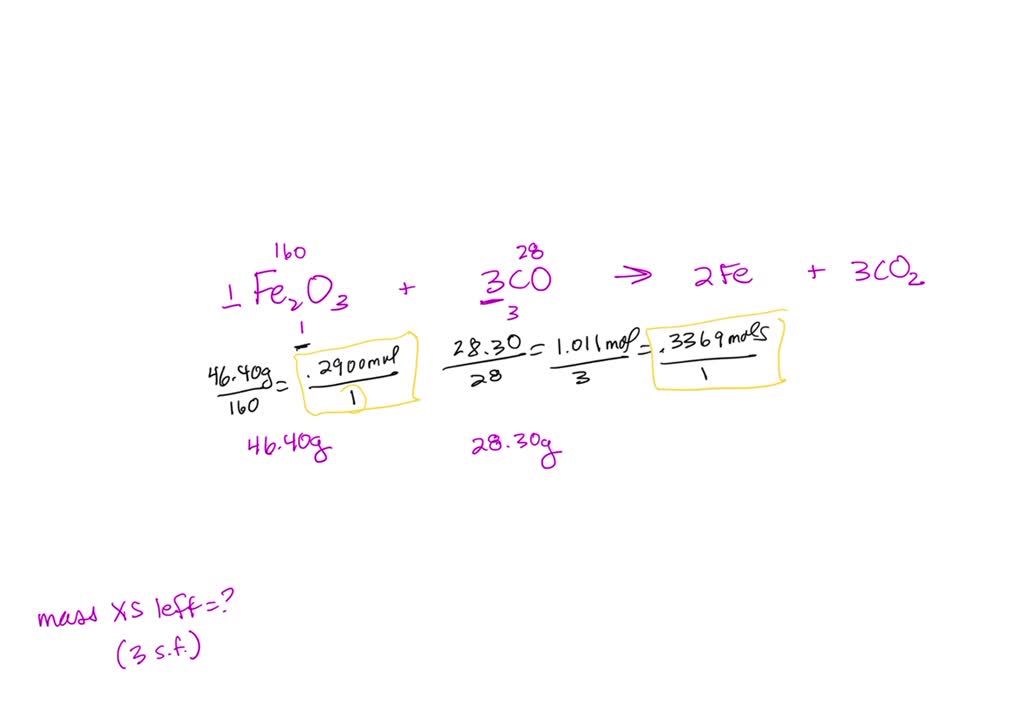 160 28
1 Fe₂O₃ + 3CO → 2Fe + 3CO₂
1 3
46.40g/160 = .2900mol/1 28.30/28 = 1.011mol/3 = .3369mols/1
46.40g 28.30g
mass XS left=?
(3 s.f.)